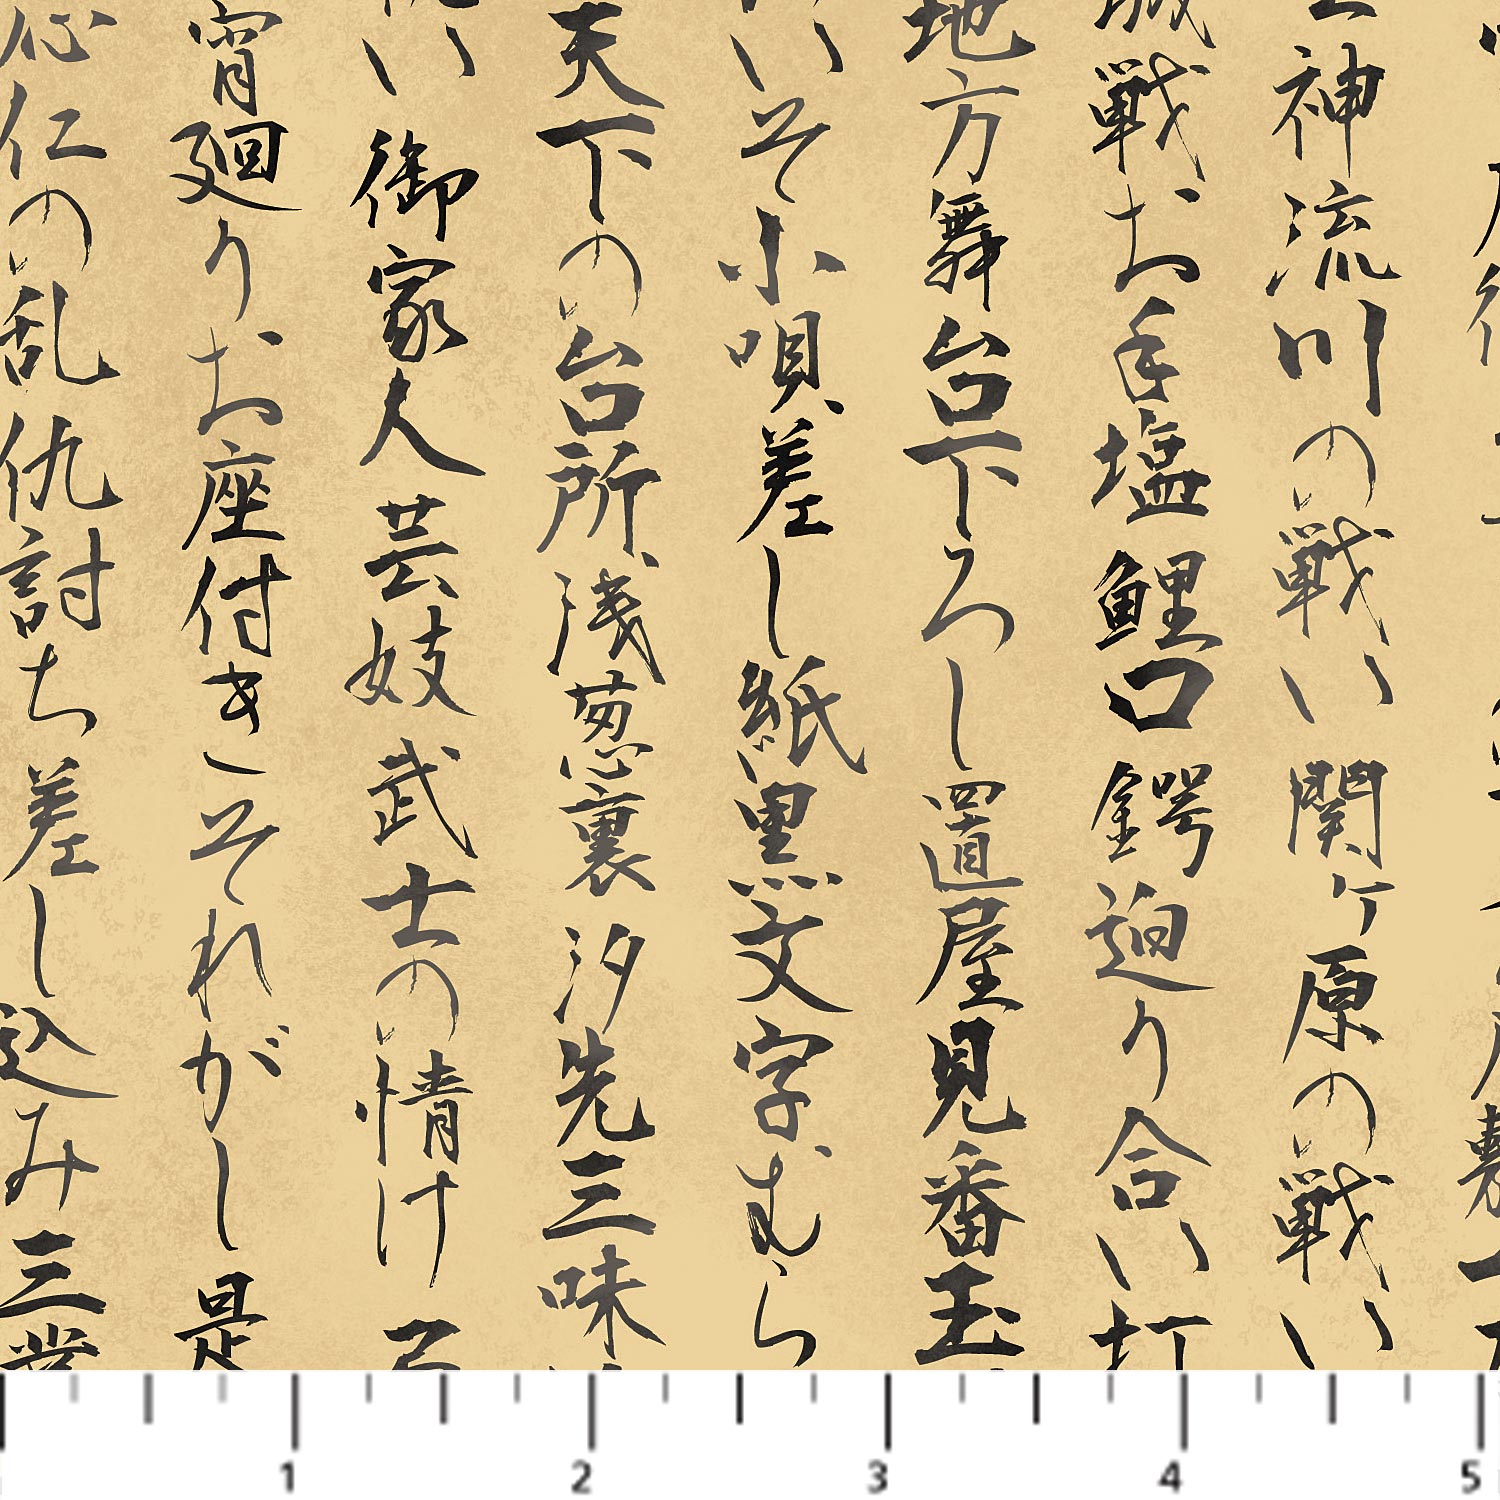 神流川の戦い関ヶ原の戦い
戦お手塩鯉口鍔迫り合い打
地方舞台下ろし置屋見番玉
いそ小唄差し紙黒文字むら
天下の台所浅葱裏汐先三味
い御家人芸妓武士の情け
宵廻りお座付きそれがし是
仁の乱仇討ち差し込み三業
1 2 3 4 5